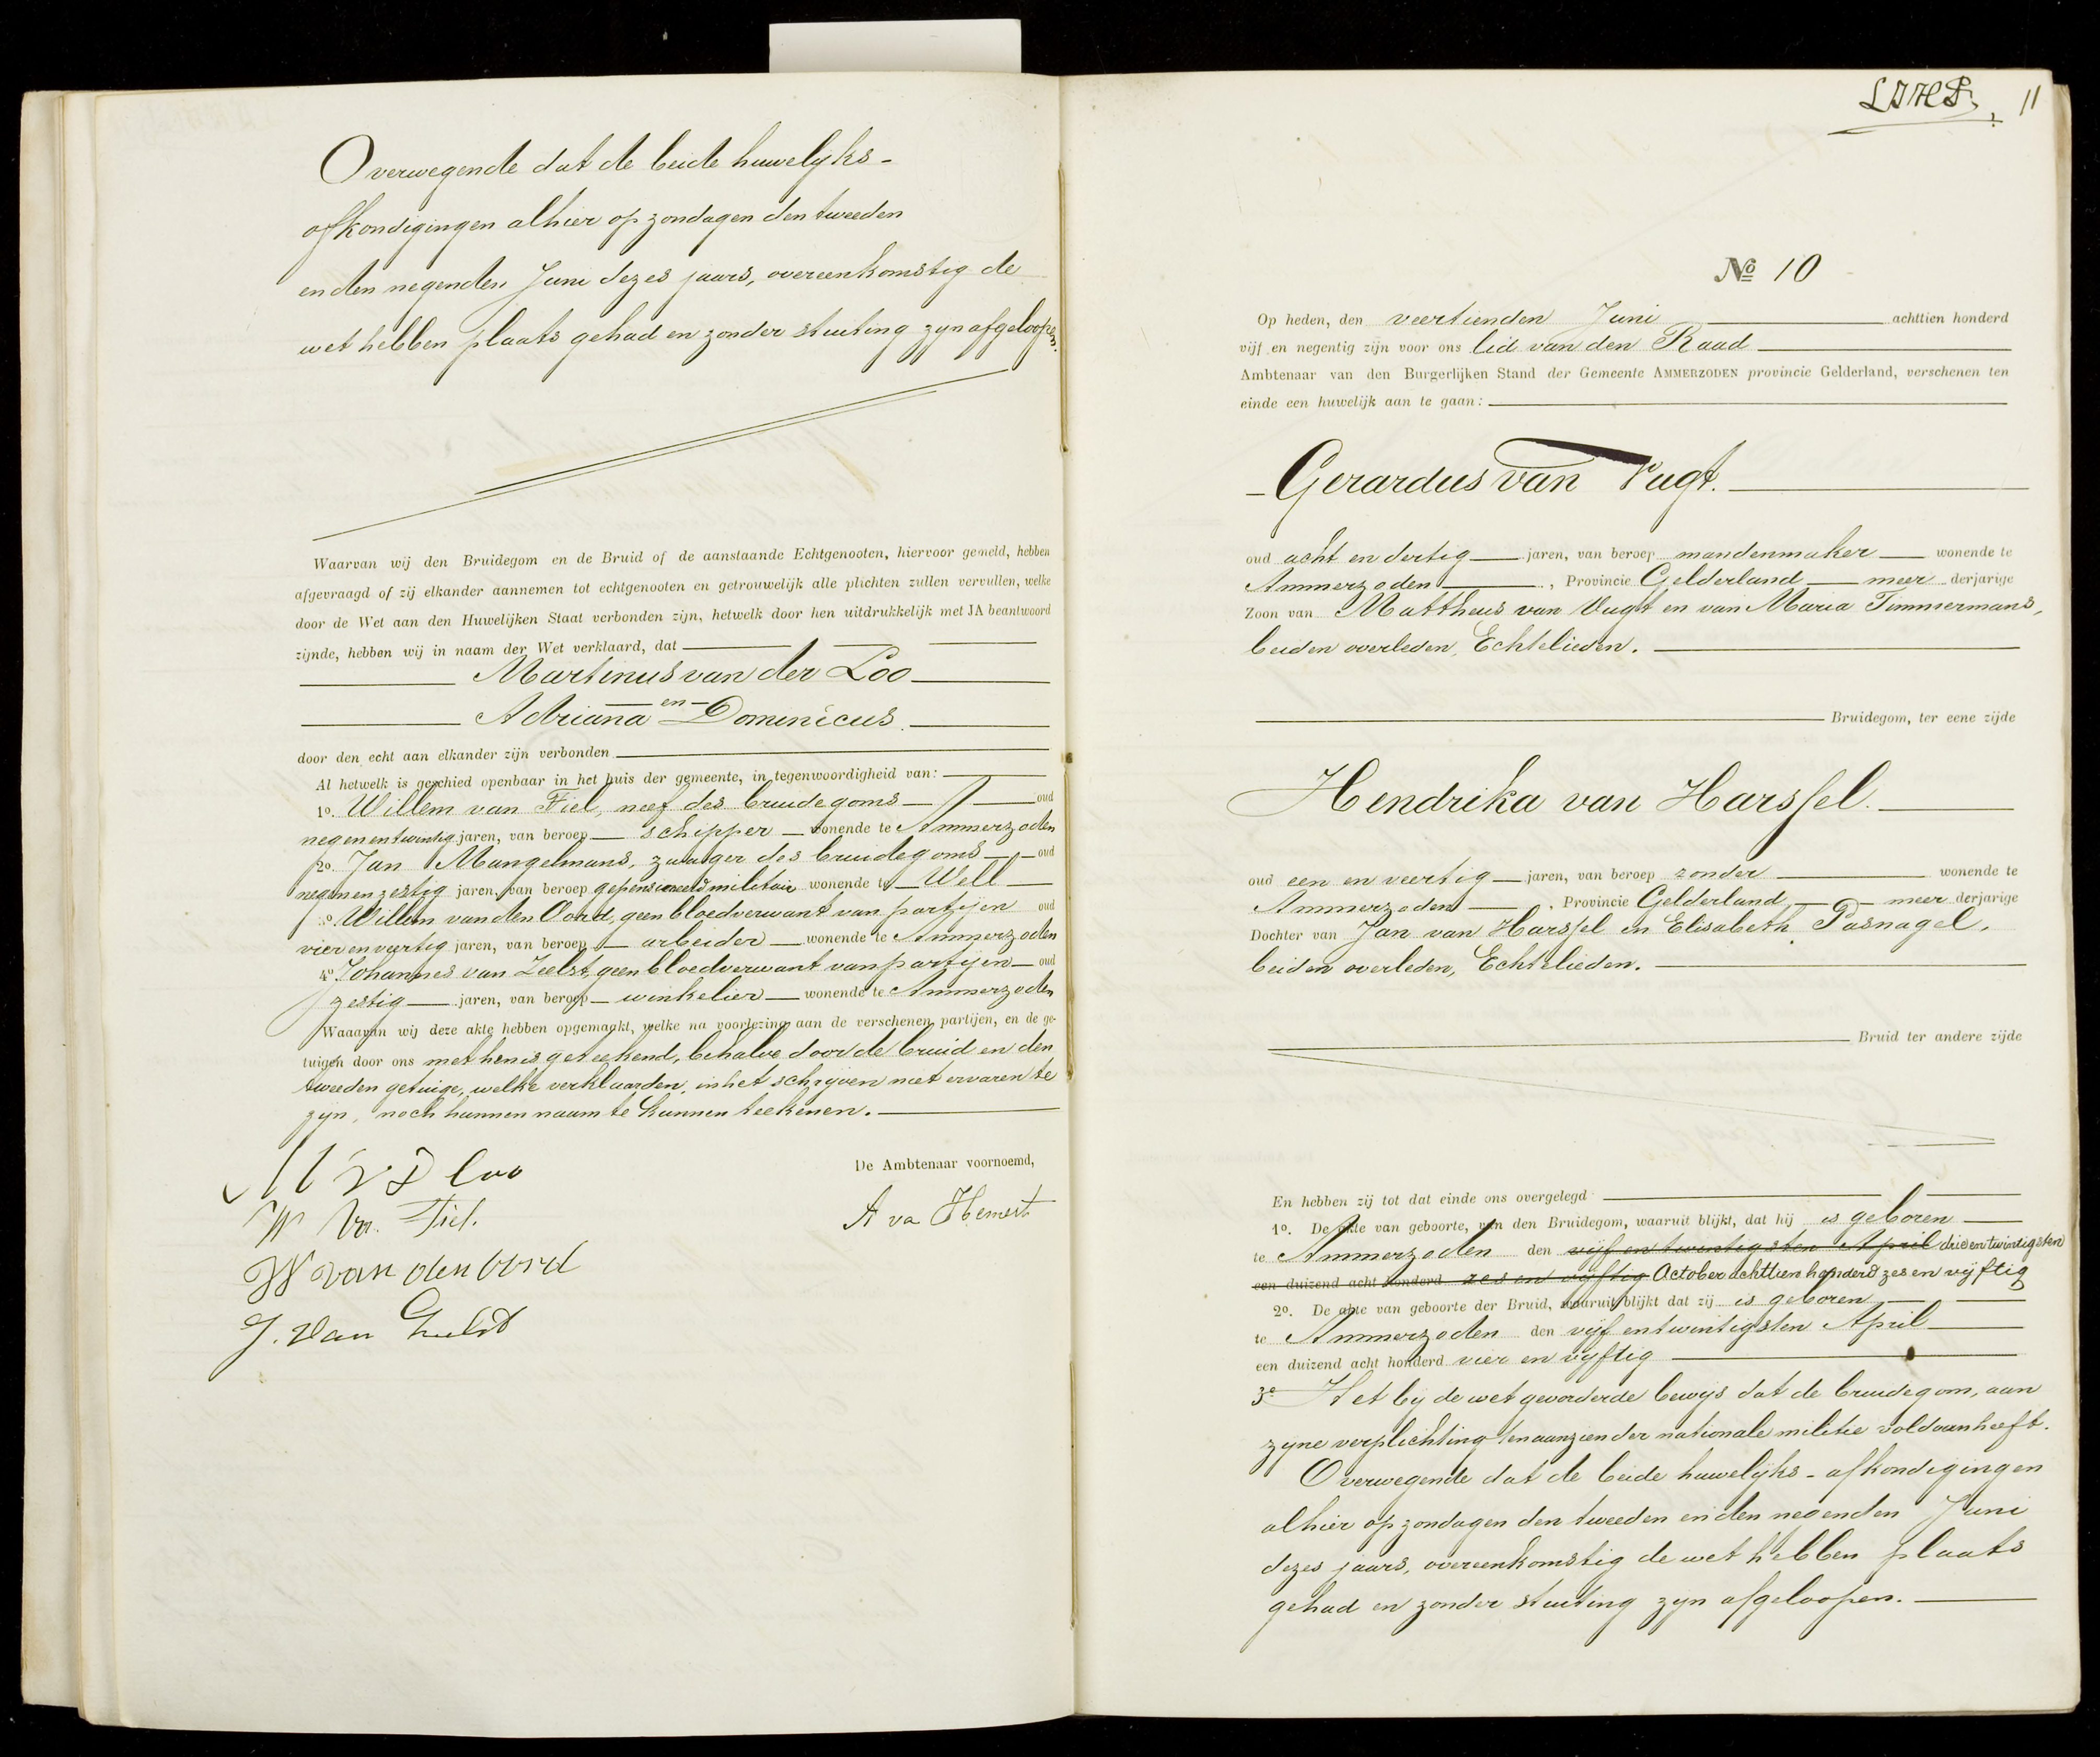 Overwegende dat de beide huwelijks-
afkondigingen alhier op zondagen den tweeden
en den negenden Juni dezes jaars, overeenkomstig de
wet hebben plaats gehad en zonder stuiting zijn afgeloopen.
Waarvan wij den Bruidegom en de Bruid of de aanstaande Echtgenooten, hiervoor gemeld, hebben
afgevraagd of zij elkander aannemen tot echtgenooten en getrouwelijk alle plichten zullen vervullen, welke
door de Wet aan den Huwelijken Staat verbonden zijn, hetwelk door hen uitdrukkelijk met JA beantwoord
zijnde, hebben wij in naam der Wet verklaard, dat
Martinus van der Loo
en
Adriana Dominicus.
door den echt aan elkander zijn verbonden
Al hetwelk is geschied openbaar in het huis der gemeente, in tegenwoordigheid van:
1o. Willem van Tiel, neef des bruidegoms oud
negenentwintig jaren, van beroep schipper wonende te Ammerzoden
2o. Jan Mangelmans, zwager des bruidegoms oud
negenenzestig jaren, van beroep gepensioneerd militair wonende te Well
3o. Willem van den Oord, geen bloedverwant van partijen oud
vierenveertig jaren, van beroep arbeider wonende te Ammerzoden
4o. Johannes van Zeelst, geen bloedverwant van partijen oud
zestig jaren, van beroep winkelier wonende te Ammerzoden
Waarvan wij deze akte hebben opgemaakt, welke na voorlezing aan de verschenen partijen, en de ge-
tuigen door ons met hen is geteekend, behalve door de bruid en den
tweeden getuige, welke verklaarden, in het schrijven niet ervaren te
zijn, noch hunnen naam te kunnen teekenen.
De Ambtenaar voornoemd,
M V D Loo
W Vn. Tiel.
A va Hemert
W van den oord
J. van Zeelst
11
No 10
Op heden, den veertienden Juni achttien honderd
vijf en negentig zijn voor ons lid van den Raad
Ambtenaar van den Burgerlijken Stand der Gemeente AMMERZODEN provincie Gelderland, verschenen ten
einde een huwelijk aan te gaan:
Gerardus van Vugt.
oud acht en dertig jaren, van beroep mandenmaker wonende te
Ammerzoden, Provincie Gelderland meer derjarige
Zoon van Mattheus van Vugt en van Maria Timmermans,
beiden overleden, Echtelieden.
Bruidegom, ter eene zijde
Hendrika van Harssel.
oud een en veertig jaren, van beroep zonder wonende te
Ammerzoden, Provincie Gelderland meer derjarige
Dochter van Jan van Harssel en Elisabeth Pasnagel,
beiden overleden, Echtelieden.
Bruid ter andere zijde
En hebben zij tot dat einde ons overgelegd
1o. De akte van geboorte, van den Bruidegom, waaruit blijkt, dat hij is geboren
te Ammerzoden den vijf en twintigsten April drie en twintigsten
een duizend acht honderd zes en vijftig October achttien honderd zes en vijftig
2o. De akte van geboorte der Bruid, waaruit blijkt dat zij is geboren
te Ammerzoden den vijf en twintigsten April
een duizend acht honderd vier en vijftig
3o Het bij de wet gevorderde bewijs dat de bruidegom, aan
zijne verplichting ten aanzien der nationale militie voldaan heeft.
Overwegende dat de beide huwelijks-afkondigingen
alhier op zondagen den tweeden en den negenden Juni
dezes jaars, overeenkomstig de wet hebben plaats
gehad en zonder stuiting zijn afgeloopen.